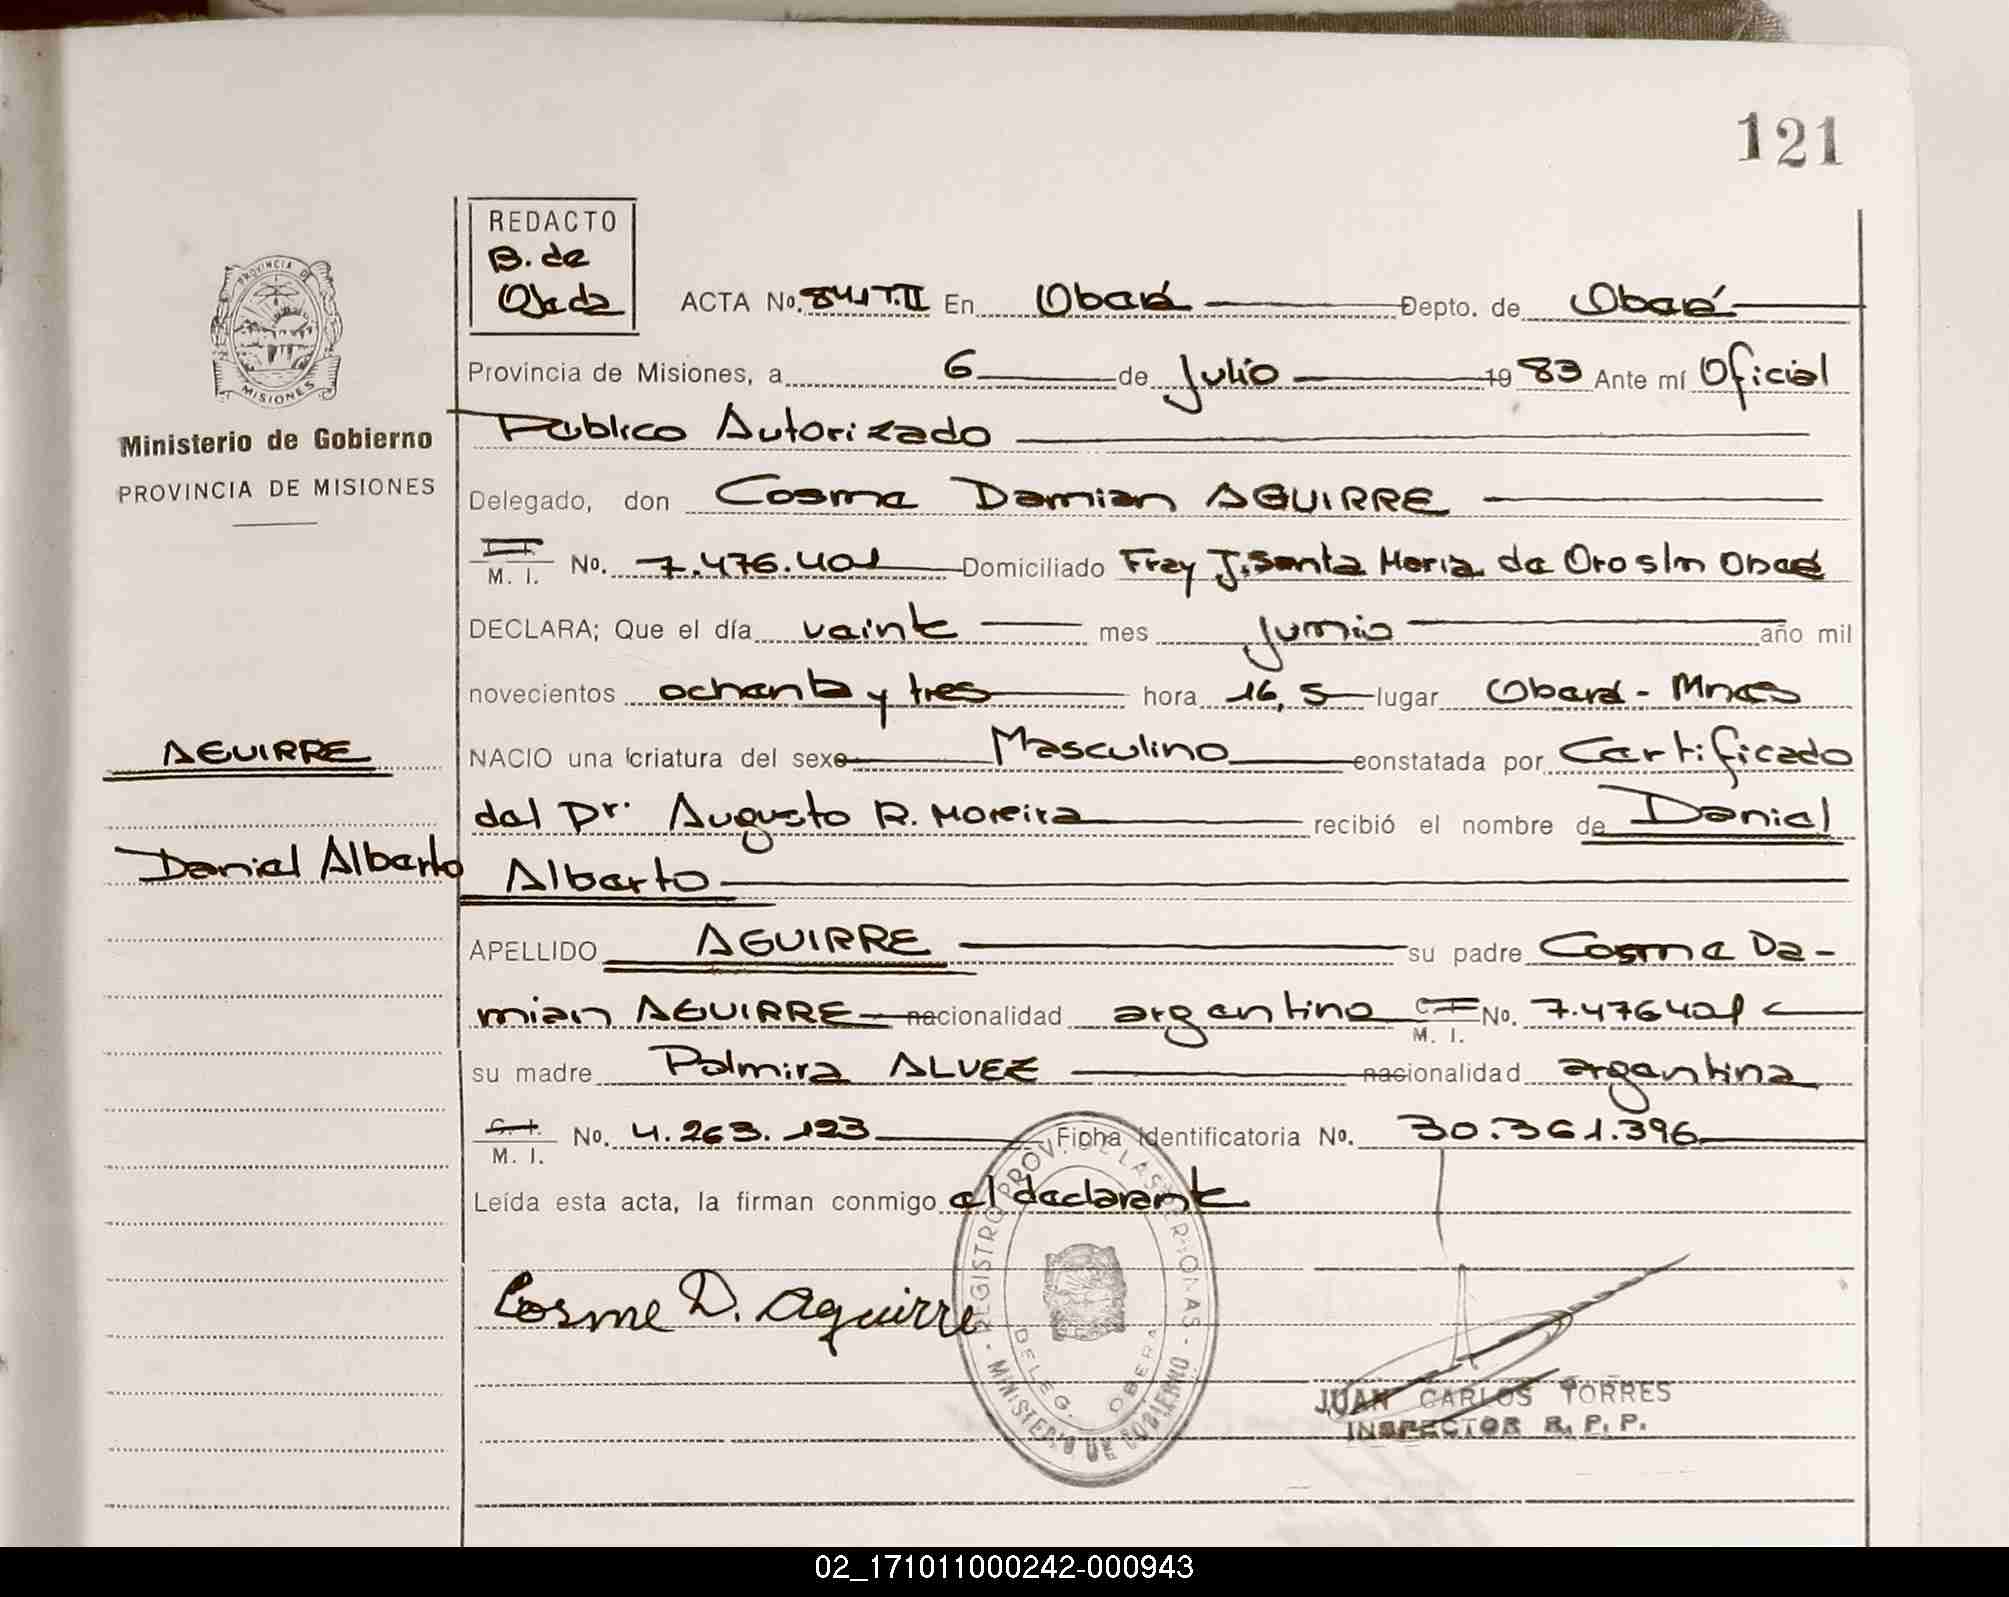 121
REDACTO
B. de
Ojeda
ACTA No. 841 T.II En Oberá Depto. de Oberá
PROVINCIA DE
MISIONES
Provincia de Misiones, a 6 de Julio 1983 Ante mí Oficial
Ministerio de Gobierno
Público Autorizado
PROVINCIA DE MISIONES
Delegado, don Cosme Damian AGUIRRE
M. I. No. 7.476.401 Domiciliado Fray J. Santa Maria de Oro s/n Oberá
DECLARA; Que el día veinte mes junio año mil
novecientos ochenta y tres hora 16,5 lugar Oberá - Mnes
AGUIRRE
NACIO una criatura del sexo Masculino constatada por Certificado
del Dr. Augusto R. Moreira recibió el nombre de Daniel
Daniel Alberto
Alberto
APELLIDO AGUIRRE su padre Cosme Da-
mian AGUIRRE nacionalidad argentino C.I. M. I. No. 7.476401
su madre Palmira ALVEZ nacionalidad argentina
C.I. M. I. No. 4.263.123 Ficha Identificatoria No. 30.361.396
Leída esta acta, la firman conmigo el declarante
Cosme D. Aguirre
REGISTRO PROV. DE LAS PERSONAS - MINISTERIO DE GOBIERNO -
DELEG. OBERA
JUAN CARLOS TORRES
INSPECTOR R. P. P.
02_171011000242-000943